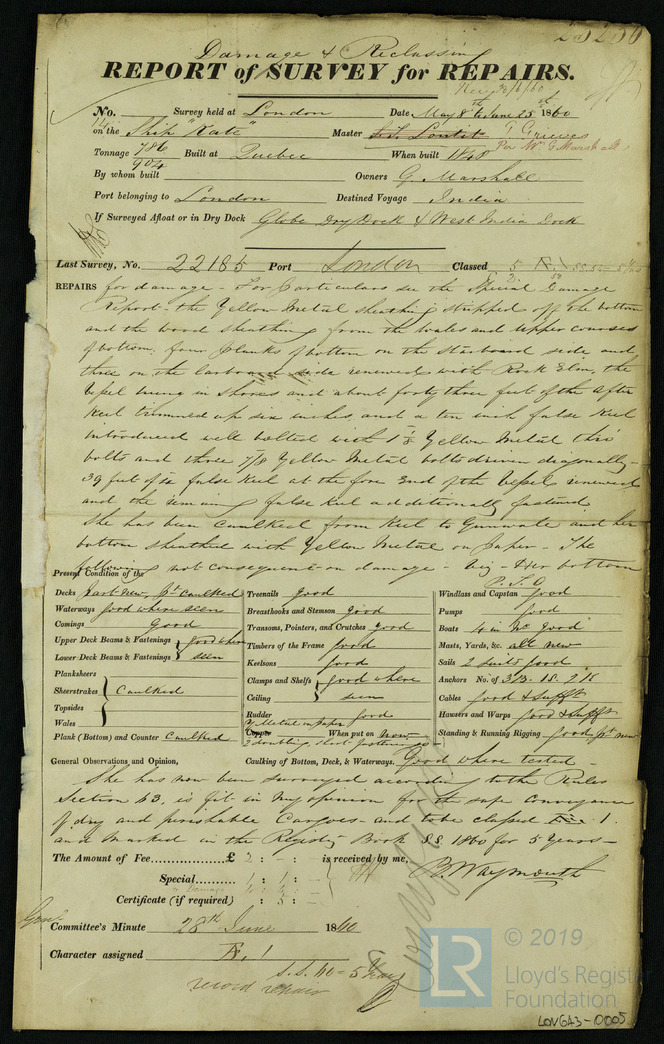 Damage & Reclassing
REPORT of SURVEY for REPAIRS.
No. Survey held at London Date May 8th to June 25 1860
on the Ship "Kate" Master T Grieves
Per Wm G Marshall
Tonnage 786 Built at Quebec When built 1848
904
By whom built Owners G. Marshall
Port belonging to London Destined Voyage India
If Surveyed Afloat or in Dry Dock Globe Dry Dock & West India Dock
Last Survey, No. 22185 Port London Classed 5
REPAIRS for damage - For particulars see the Special Damage
Report - the Yellow Metal sheathing stripped off the bottom
and the wood sheathing from the wales and upper courses
of bottom. four planks of bottom on the starboard side and
three on the larboard side renewed with Rock Elm, the
Vessel hung in shores and about forty three feet of the after
keel trimmed up six inches and a ten inch false keel
introduced well bolted with 1 1/8 Yellow Metal thro'
bolts and three 7/8 Yellow Metal bolts driven diagonally -
39 feet of false keel at the fore end of the Vessel renewed
and the remaing false keel additionally fastened
She has been caulked from keel to Gunwale and her
bottom sheathed with Yellow Metal on paper - The
following not consequent on damage - viz - Her bottom
P.T.O
Present Condition of the
Decks part new, pt caulked
Waterways good where seen
Comings Good
Upper Deck Beams & Fastenings } good where
Lower Deck Beams & Fastenings } seen
Planksheers
Sheerstrakes } Caulked
Topsides
Wales
Plank (Bottom) and Counter Caulked
Treenails Good
Breasthooks and Stemson Good
Transoms, Pointers, and Crutches Good
Timbers of the Frame Good
Keelsons Good
Clamps and Shelfs } Good where
Ceiling } seen
Rudder Good
Y. Metal on paper
Copper When put on Now
Caulking of Bottom, Deck, & Waterways. Good where tested -
Windlass and Capstan Good
Pumps Good
Boats 4 in No Good
Masts, Yards, &c. all new
Sails 2 suits Good
Anchors No. of 3 B. 1 S. 2 K
Cables Good & suffft
Hawsers and Warps Good & suffft
Standing & Running Rigging Good, pt new
General Observations and Opinion,
She has now been surveyed according to the Rules
Section 53, is fit in my opinion for the safe conveyance
of dry and perishable Cargoes - and to be classed 1.
and marked in the Registry Book S.S. 1860 for 5 Years -
The Amount of Fee £ 2 : - : - is received by me,
Special
Damage
Certificate (if required) B. Waymouth
Committee's Minute 28th June 1860
Character assigned Æ. 1
S.S. 60 - 5 Years
record repairs
LR © 2019
Lloyd's Register
Foundation
LOVGA3-0005